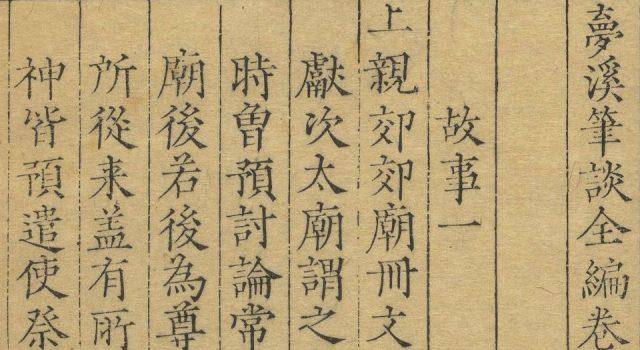 夢溪筆談全編卷
故事一
上親郊郊廟冊文
獻次太廟謂之
時曾預討論常
廟後若後為尊
所從来盖有所
神皆預遣使祭